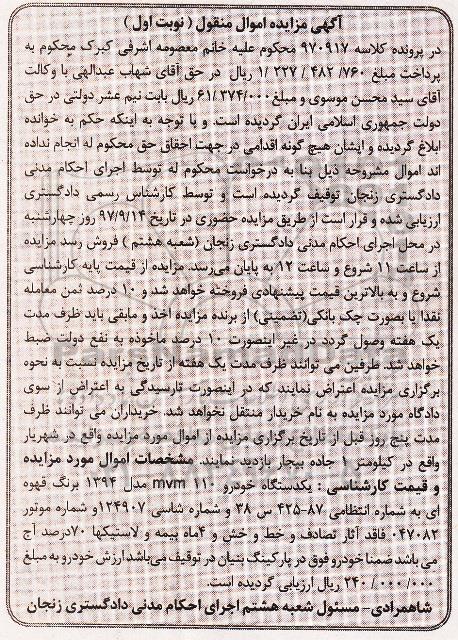 آگهی مزایده اموال منقول ( نوبت اول )
در پرونده کلاسه ۹۷۰۹۱۷ محکوم علیه خانم معصومه اشرفی کبرک محکوم به
پرداخت مبلغ ۷۶۰/ ۴۸۲ / ۲۲۷ /۱ ریال در حق آقای شهاب عبدالهی با وکالت
آقای سید محسن موسوی و مبلغ ۶۱/۳۷۴/۰۰۰ ریال بابت نیم عشر دولتی در حق
دولت جمهوری اسلامی ایران گردیده است. و با توجه به اینکه حکم به خوانده
ابلاغ گردیده و ایشان هیچ گونه اقدامی در جهت احقاق حق محکوم له انجام نداده
اند اموال مشروحه ذیل بنا به درخواست محکوم له توسط اجرای احکام مدنی
دادگستری زنجان توقیف گردیده است و توسط کارشناس رسمی دادگستری
ارزیابی شده و قرار است از طریق مزایده حضوری در تاریخ ۹۷/۹/۱۴ روز چهارشنبه
در محل اجرای احکام مدنی دادگستری زنجان (شعبه هشتم ) فروش رسد مزایده
از ساعت ۱۱ شروع و ساعت ۱۲ به پایان می‌رسد. مزایده از قیمت پایه کارشناسی
شروع و به بالاترین قیمت پیشنهادی فروخته خواهد شد و ۱۰ درصد ثمن معامله
نقدا یا بصورت چک بانکی(تضمینی) از برنده مزایده اخذ و مابقی باید ظرف مدت
یک هفته وصول گردد در غیر اینصورت ۱۰ درصد ماخوذه به نفع دولت ضبط
خواهد شد. طرفین می توانند ظرف مدت یک هفته از تاریخ مزایده نسبت به نحوه
برگزاری مزایده اعتراض نمایند که در اینصورت تارسیدگی به اعتراض از سوی
دادگاه مورد مزایده به نام خریدار منتقل نخواهد شد. خریداران می توانند ظرف
مدت پنج روز قبل از تاریخ برگزاری مزایده از اموال مورد مزایده واقع در شهریار
واقع در کیلومتر ۱ جاده بیجار بازدید نمایند. مشخصات اموال مورد مزایده
و قیمت کارشناسی : یکدستگاه خودرو mvm ۱۱۰ مدل ۱۳۹۴ برنگ قهوه
ای به شماره انتظامی ۸۷-۴۲۵ س ۳۸ و شماره شاسی ۱۲۴۹۰۷و شماره موتور
۰۴۷۰۸۲ فاقد آثار تصادف و خط و خش و ۴ماه بیمه و لاستیکها ۷۰درصد آج
می باشد ضمنا خودرو فوق در پارکینگ بنیان در توقیف می‌باشد ارزش خودرو به مبلغ
۲۴۰/ ۰۰۰/ ۰۰۰ ریال ارزیابی گردیده است.
شاهمرادی- مسئول شعبه هشتم اجرای احکام مدنی دادگستری زنجان